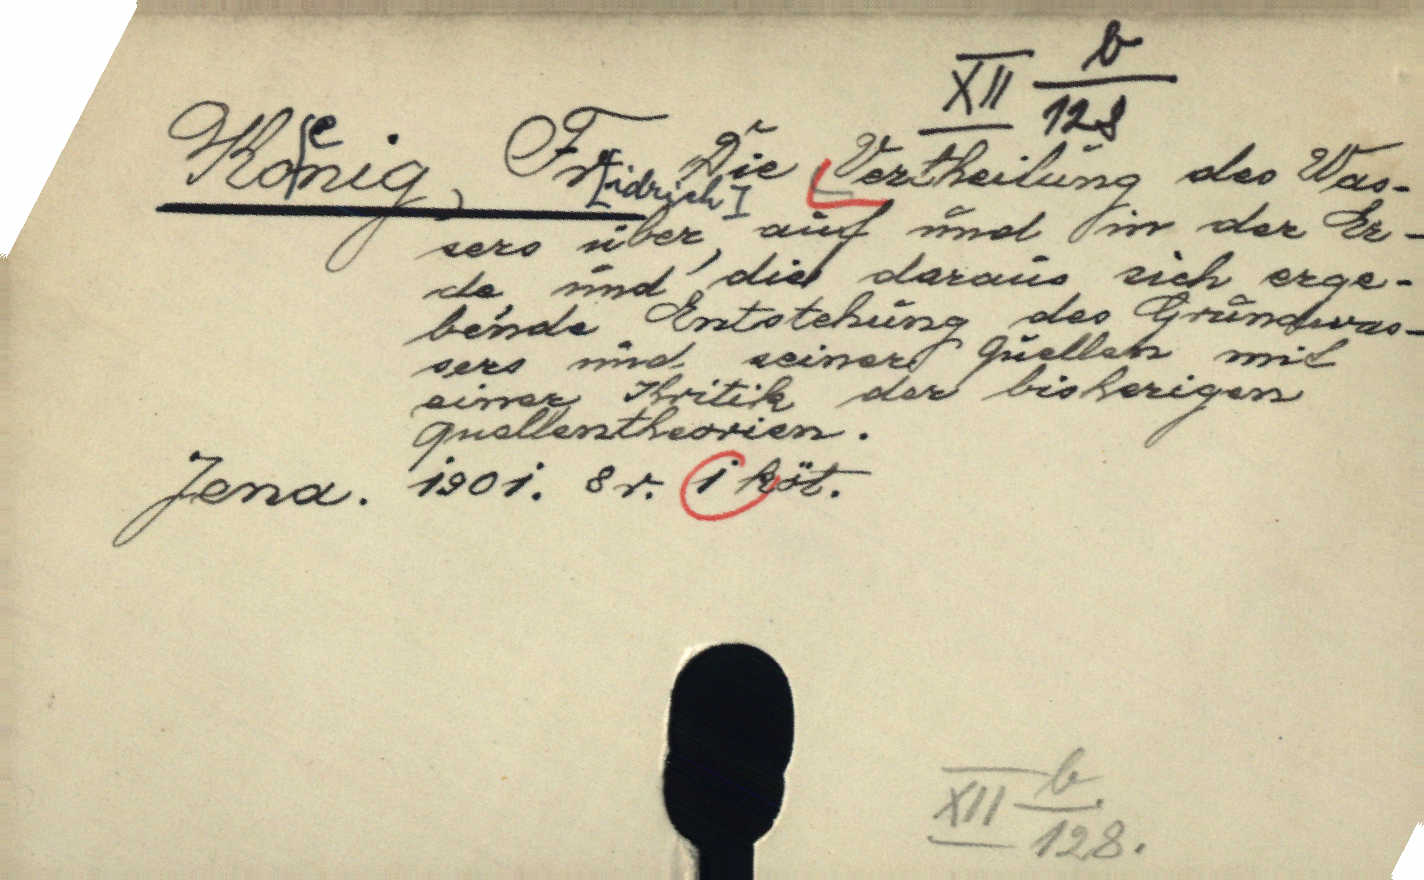 XII b/128
Koenig, Fr[iedrich] Die Vertheilung des Was-
sers über, auf und in der Er-
de und die daraus sich erge-
bende Entstehung des Grundwas-
sers und seiner Quellen mit
einer Kritik der bisherigen
Quellentheorien.
Jena. 1901. 8 r. 1 köt.
XII b/128.